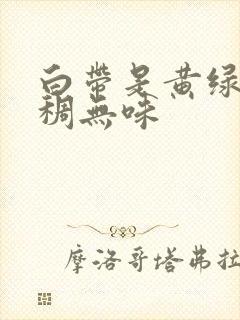 白带是黄绿
稠無味
摩洛哥塔弗拉